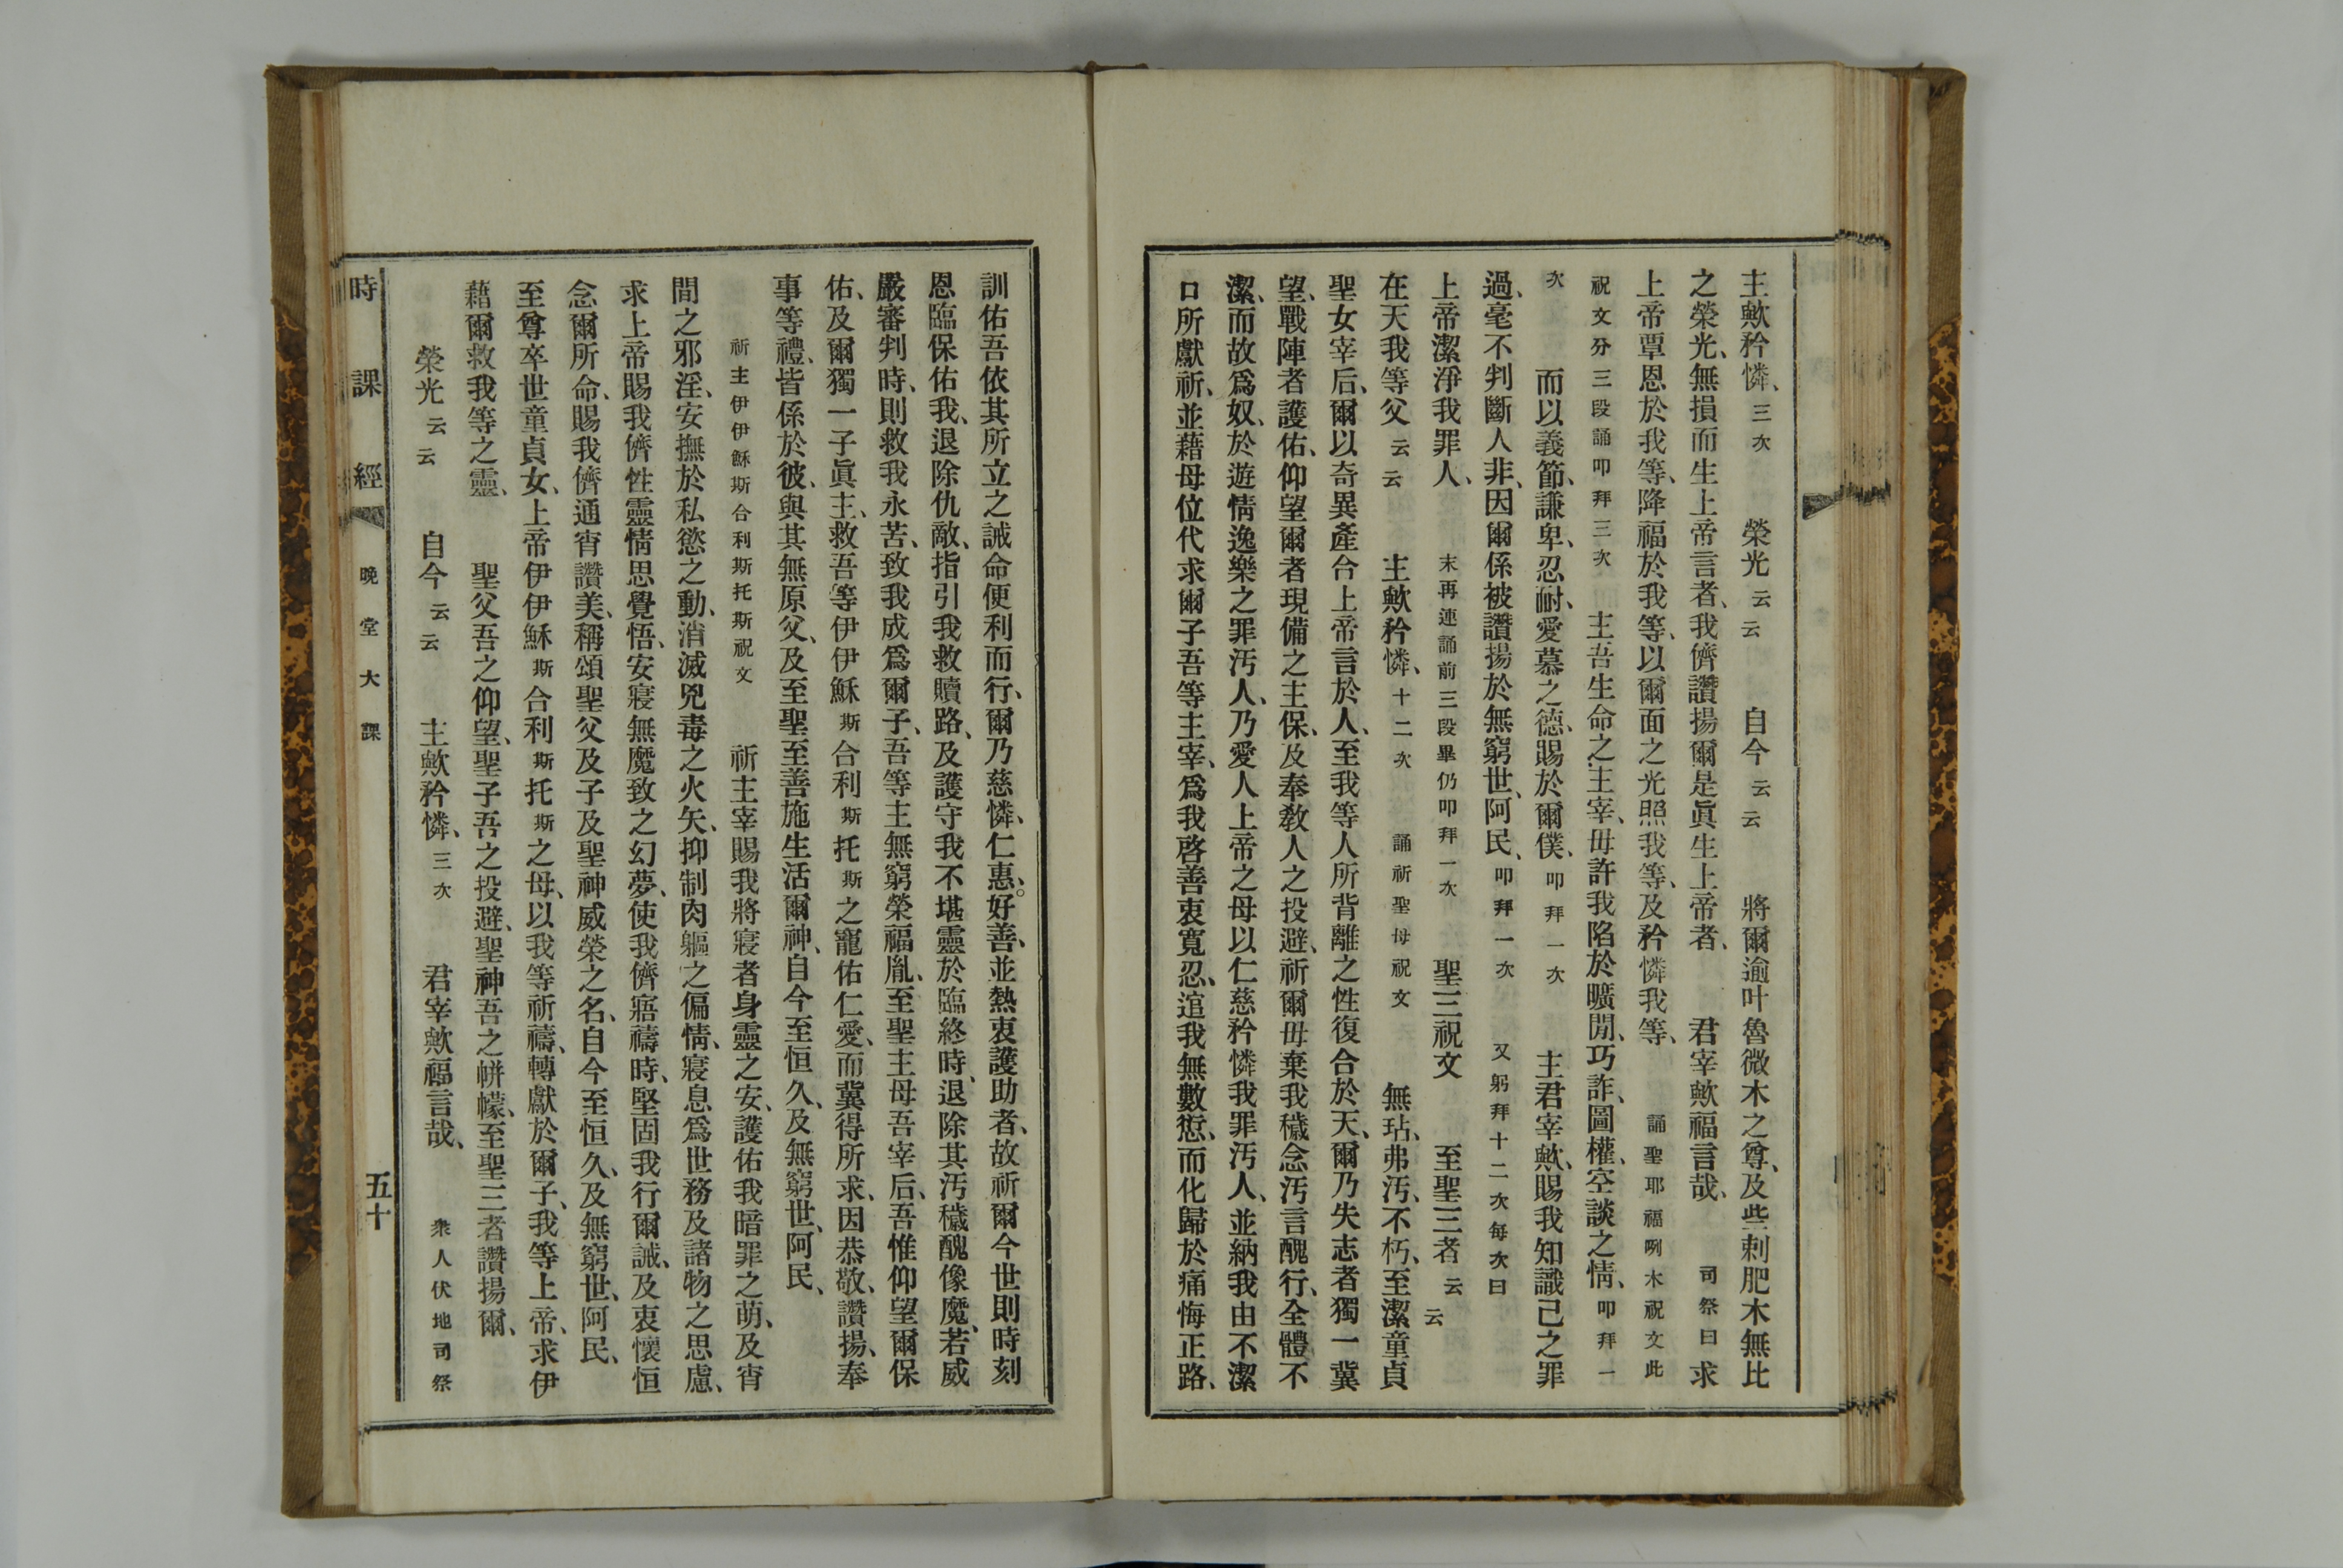 主歟矜憐、三次　榮光云云　自今云云　將爾逾叶魯微木之尊、及些剌肥木無比
之榮光、無損而生上帝言者、我儕讚揚爾是眞生上帝者、　君宰歟福言哉、　司祭曰求
上帝覃恩於我等、降福於我等、以爾面之光照我等、及矜憐我等、　誦聖耶福咧木祝文此
祝文分三段誦叩拜三次　主吾生命之主宰、毋許我陷於曠閒、巧詐、圖權、空談之情、叩拜一
次　而以義節、謙卑、忍耐、愛慕之德、賜於爾僕、叩拜一次　主君宰歟、賜我知識己之罪
過、毫不判斷人非、因爾係被讚揚於無窮世、阿民、叩拜一次　又躬拜十二次每次曰
上帝潔淨我罪人、　末再連誦前三段畢仍叩拜一次　聖三祝文　至聖三者云云
在天我等父云云　主歟矜憐、十二次　誦祈聖母祝文　無玷、弗汚、不朽、至潔童貞
聖女宰后、爾以奇異產合上帝言於人、至我等人所背離之性復合於天、爾乃失志者獨一冀
望、戰陣者護佑、仰望爾者現備之主保、及奉敎人之投避、祈爾毋棄我穢念汚言醜行、全體不
潔、而故爲奴、於遊情逸樂之罪汚人、乃愛人上帝之母以仁慈矜憐我罪汚人、並納我由不潔
口所獻祈、並藉母位代求爾子吾等主宰、爲我啓善衷寬忍、逭我無數愆、而化歸於痛悔正路、
訓佑吾依其所立之誡命便利而行、爾乃慈憐、仁惠、好善、並熱衷護助者、故祈爾今世則時刻
恩臨保佑我、退除仇敵、指引我救贖路、及護守我不堪靈於臨終時、退除其汚穢醜像魔、若威
嚴審判時、則救我永苦、致我成爲爾子、吾等主無窮榮福胤、至聖主母吾宰后、吾惟仰望爾保
佑、及爾獨一子眞主、救吾等伊伊穌斯合利斯托斯之寵佑仁愛、而冀得所求、因恭敬、讚揚、奉
事等禮、皆係於彼、與其無原父、及至聖至善施生活爾神、自今至恒久、及無窮世、阿民、
祈主伊伊穌斯合利斯托斯祝文　祈主宰賜我將寢者身靈之安、護佑我暗罪之萌、及宵
間之邪淫、安撫於私慾之動、消滅兇毒之火矢、抑制肉軀之偏情、寢息爲世務及諸物之思慮、
求上帝賜我儕性靈情思覺悟、安寢無魔致之幻夢、使我儕寤禱時、堅固我行爾誡、及衷懷恒
念爾所命、賜我儕通宵讚美、稱頌聖父及子及聖神威榮之名、自今至恒久、及無窮世、阿民、
至尊卒世童貞女、上帝伊伊穌斯合利斯托斯之母、以我等祈禱、轉獻於爾子、我等上帝、求伊
藉爾救我等之靈、　聖父吾之仰望、聖子吾之投避、聖神吾之帲幪、至聖三者讚揚爾、
榮光云云　自今云云　主歟矜憐、三次　君宰歟福言哉、　衆人伏地司祭
時課經　晚堂大課　五十